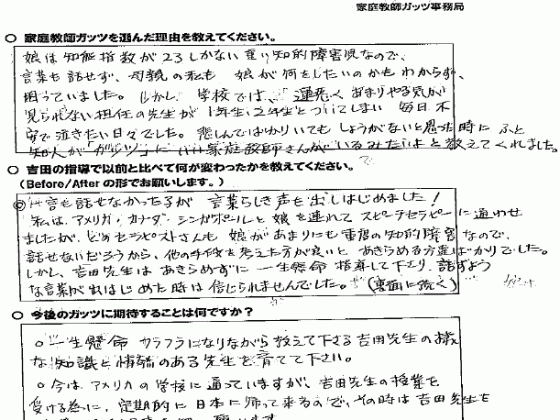 家庭教師ガッツ事務局
○ 家庭教師ガッツを選んだ理由を教えてください。
娘は知能指数が23しかない重い知的障害児なので、
言葉も話せず、母親の私も 娘が何をしたいのかもわからず、
困っていました。しかし、学校では、「運悪く あまりやる気が
見られない担任の先生が 1年生、2年生とついてしまい 毎日不
安で泣きたい日々でした。悲しんでばかりいてもしょうがないと思う時に ふと
知人が「ガッツ」に いい家庭教師さんがいるみたいよと教えてくれました。
○ 吉田の指導で以前と比べて何が変わったかを教えてください。
(Before/After の形でお願いします。)
◎ 一言も話せなかった子が 言葉らしき声を出しはじめました!
私は、アメリカ、カナダ、シンガポールと 娘を連れて スピーチセラピーに通わせ
ましたが、どのセラピストさんも 娘があまりにも重度の知的障害なので、
話せないだろうから、他の手段を考えた方が良いと あきらめる方達ばかりでした。
しかし、吉田先生は あきらめずに 一生懸命 指導して下さり、話すよう
な言葉が出はじめた時は信じられませんでした。(裏面に続く)
○ 今後のガッツに期待することは何ですか?
○一生懸命 カラフラになりながら教えて下さる 吉田先生の様
な知識と情熱のある先生を育てて下さい。
○ 今は、アメリカの学校に通っていますが、吉田先生の授業を
受ける為に、定期的に 日本に帰って来るので、その時は 吉田先生を